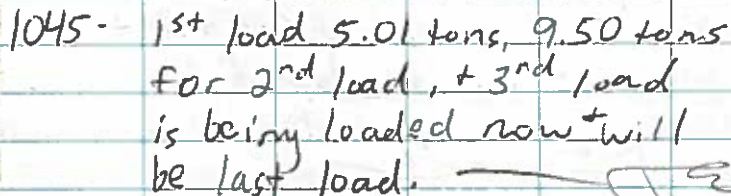 1045- 1st load 5.01 tons, 9.50 tons
for 2nd load, + 3rd load
is being loaded now + will
be last load.